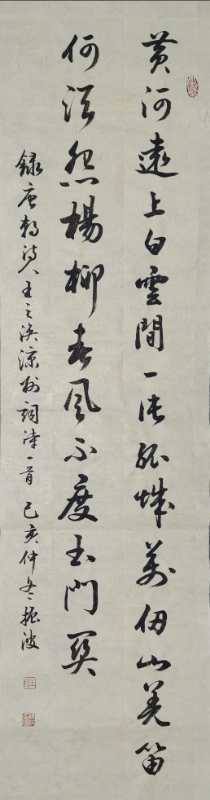 黄河遠上白雲間一片孤城萬仞山羌笛
何須怨楊柳春風不度玉門關
録唐朝詩人王之渙涼州詞詩一首 己亥仲冬振波